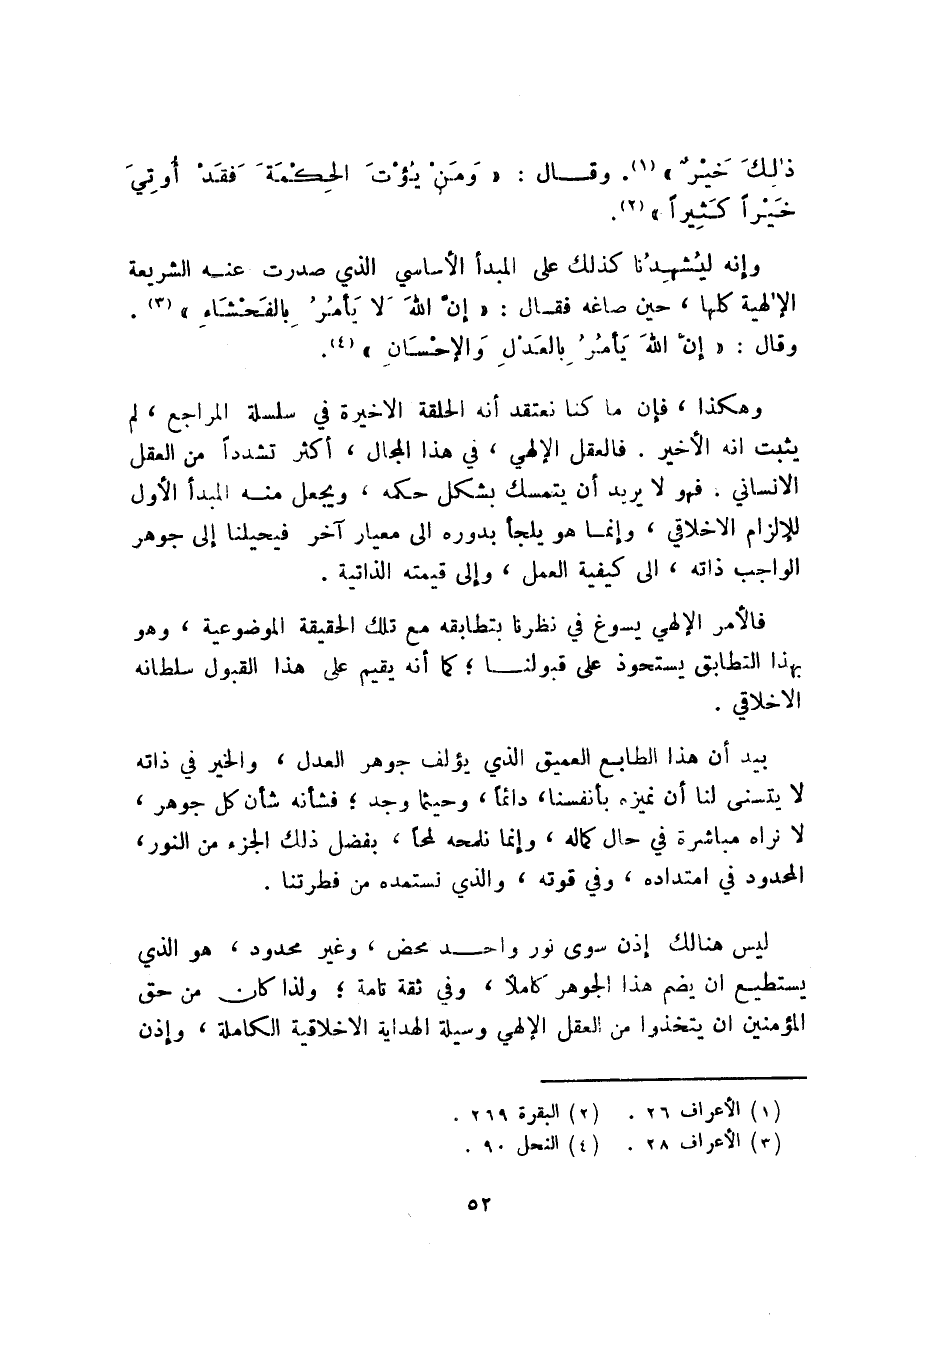 ذٰلِكَ خَيْرٌ » (١). وقــال : « وَمَنْ يُؤْتَ الحِكْمَةَ فَقَدْ أُوتِيَ
خَيْراً كَثِيراً » (٢).
وإنه ليُشهِدُنا كذلك على المبدأ الأساسي الذي صدرت عنـه الشريعة
الإلهية كلها ، حين صاغه فقـال : « إنَّ اللهَ لا يَأمُرُ بِالفَحْشَاءِ » (٣) .
وقال : « إنَّ اللهَ يَأمُرُ بِالعَدْلِ وَالإحْسَانِ » (٤).
وهكذا ، فإن ما كنا نعتقد أنه الحلقة الاخيرة في سلسلة المراجع ، لم
يثبت انه الأخير . فالعقل الإلهي ، في هذا المجال ، أكثر تشدداً من العقل
الانساني . فهو لا يريد أن يتمسك بشكل حكمه ، ويجعل منـه المبدأ الأول
للإلزام الاخلاقي ، وإنمـا هو يلجأ بدوره الى معيار آخر فيحيلنا إلى جوهر
الواجب ذاته ، الى كيفية العمل ، وإلى قيمته الذاتية .
فالأمر الإلهي يسوغ في نظرنا بتطابقه مع تلك الحقيقة الموضوعية ، وهو
بهذا التطابق يستحوذ على قبولنــا ؛ كما أنه يقيم على هذا القبول سلطانه
الاخلاقي .
بيد أن هذا الطابع العميق الذي يؤلف جوهر العدل ، والخير في ذاته
لا يتسنى لنا أن نميزه بأنفسنا، دائماً ، وحيثما وجد ؛ فشأنه شأن كل جوهر ،
لا نراه مباشرة في حال كماله ، وإنما نلمحه لمحاً ، بفضل ذلك الجزء من النور،
المحدود في امتداده ، وفي قوته ، والذي نستمده من فطرتنا .
ليس هنالك إذن سوى نور واحــد محض ، وغير محدود ، هو الذي
يستطيع ان يضم هذا الجوهر كاملاً ، وفي ثقة تامة ؛ ولذا كان من حق
المؤمنين ان يتخذوا من العقل الإلهي وسيلة الهداية الاخلاقية الكاملة ، وإذن
(١) الأعراف ٢٦ . (٢) البقرة ٢٦٩ .
(٣) الأعراف ٢٨ . (٤) النحل ٩٠ .
٥٢